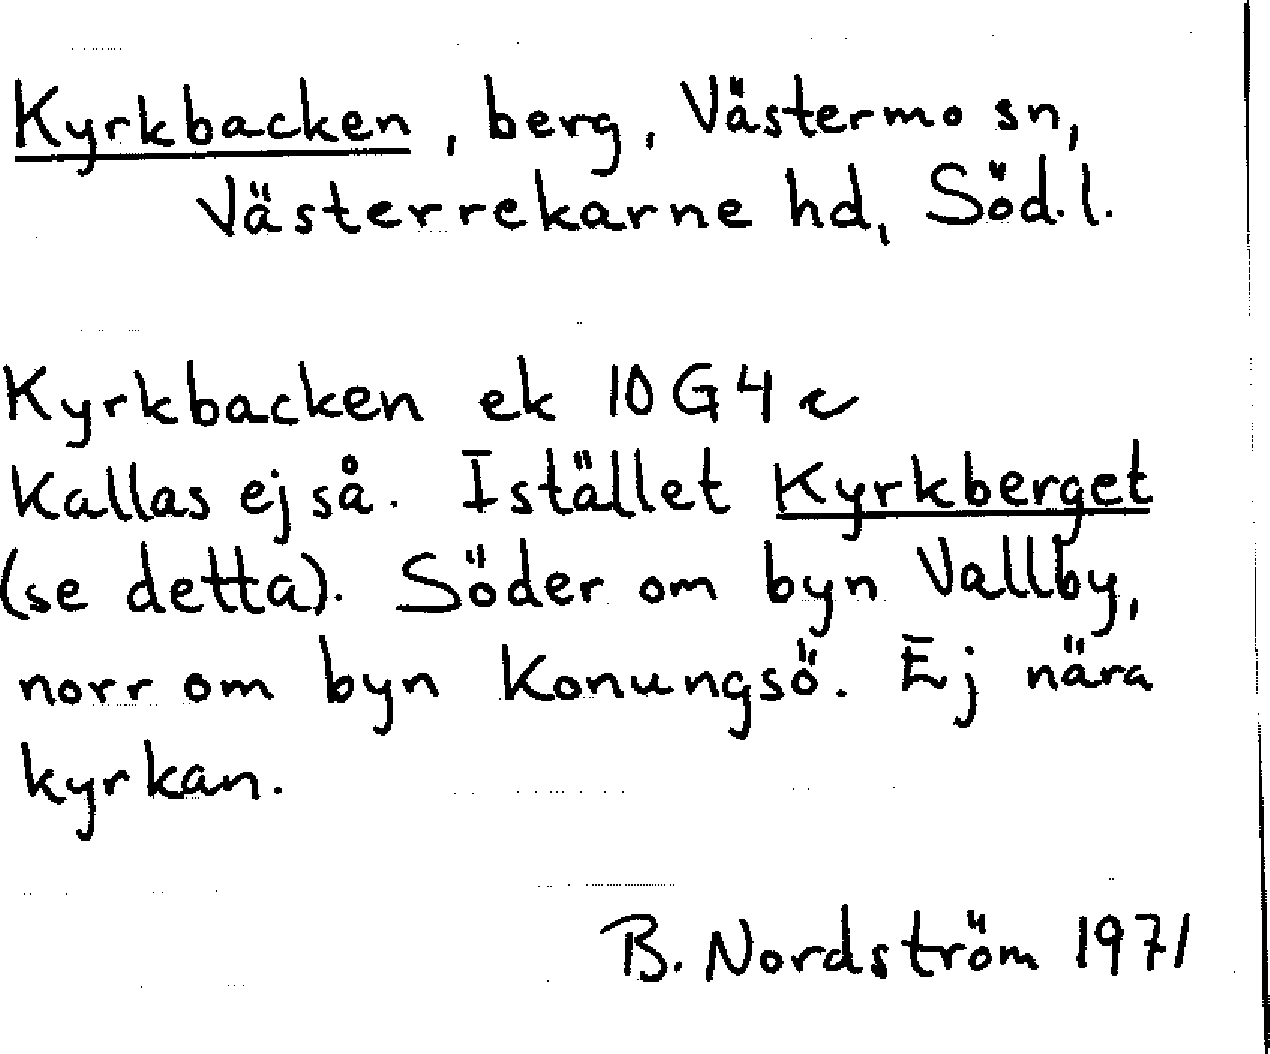 Kyrkbacken, berg, Västermo sn,
Västerrekarne hd, Söd.l.
Kyrkbacken ek 10G4c
Kallas ej så. Istället Kyrkberget
(se detta). Söder om byn Vallby,
norr om byn Konungsö. Ej nära
kyrkan.
B. Nordström 1971